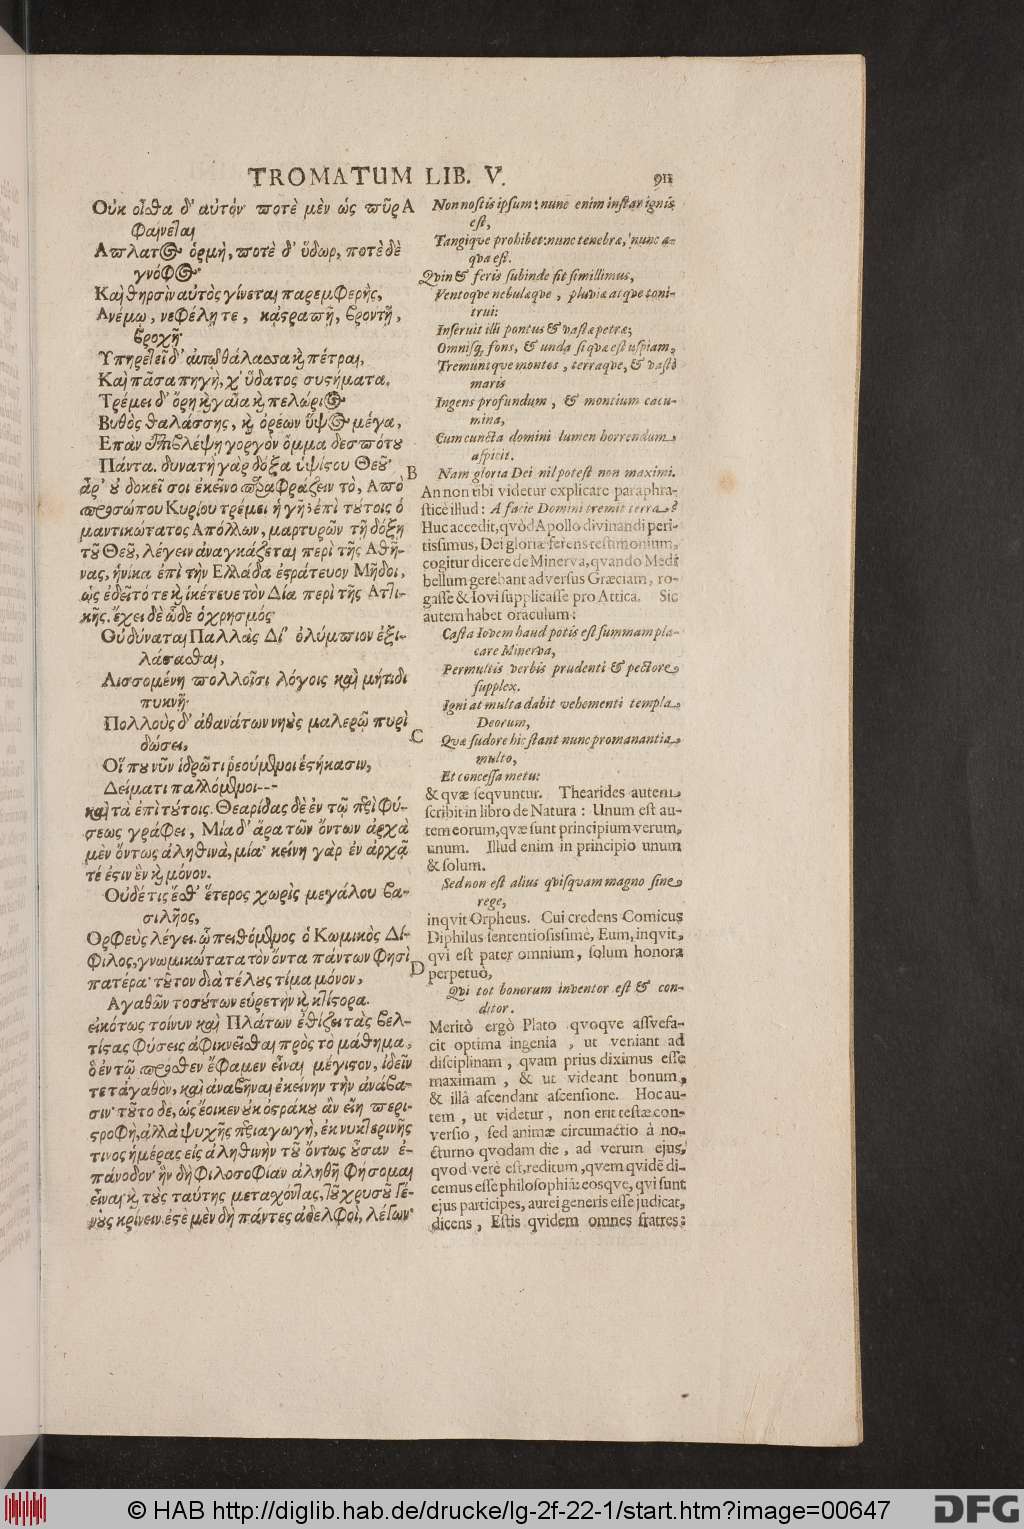 TROMATUM LIB. V.
911
Οὐκ οἶσθα δ' αὐτόν· ποτὲ μὲν ὡς πῦρ
φαίνεται
Απλατος ὁρμὴ, ποτὲ δ' ὕδωρ, ποτὲ δὲ
γνόφος·
Καὶ θηρσὶν αὐτὸς γίνεται παρεμφερὴς,
Ανέμῳ, νεφέλῃ τε, κᾀστραπῇ, βροντῇ,
βροχῇ·
Υπηρετεῖ δ' αὐτῷ θάλασσα καὶ πέτραι,
Καὶ πᾶσα πηγὴ, χ' ὕδατος συστήματα.
Τρέμει δ' ὄρη καὶ γαῖα καὶ πελώριος
Βυθὸς θαλάσσης, καὶ ὀρέων ὕψος μέγα,
Επὰν ἐπιβλέψῃ γοργὸν ὄμμα δεσπότου
Πάντα. δυνατὴ γὰρ δόξα ὑψίστου Θεοῦ·
ἆρ' οὐ δοκεῖ σοι ἐκεῖνο παραφράζειν τὸ, Απὸ
προσώπου Κυρίου τρέμει ἡ γῆ; ἐπὶ τούτοις ὁ
μαντικώτατος Απόλλων, μαρτυρῶν τῇ δόξῃ
τοῦ Θεοῦ, λέγειν ἀναγκάζεται περὶ τῆς Αθη-
νας, ἡνίκα ἐπὶ τὴν Ελλάδα ἐστράτευον Μῆδοι,
ὡς ἐδεῖτό τε καὶ ἱκέτευε τὸν Δία περὶ τῆς Ατ]ι-
κῆς. ἔχει δὲ ὧδε ὁ χρησμός·
Οὐ δύναται Παλλὰς Δί' ὀλύμπιον ἐξι-
λάσασθαι,
Λισσομένη πολλοῖσι λόγοις καὶ μήτιδι
πυκνῇ·
Πολλοὺς δ' ἀθανάτων νηοὺς μαλερῷ πυρὶ
δώσει,
Οἵ που νῦν ἱδρῶτι ῥεούμενοι ἑστήκασιν,
Δείματι παλλόμενοι---
καὶ τὰ ἐπὶ τούτοις. Θεαρίδας δὲ ἐν τῷ περὶ φύ-
σεως γράφει, Μία δ' ἄρα τῶν ὄντων ἀρχὰ
μὲν ὄντως ἀληθινὰ, μία· κείνη γὰρ ἐν ἀρχᾷ
τέ ἐστιν ἓν καὶ μόνον.
Οὐδέ τις ἔσθ' ἕτερος χωρὶς μεγάλου βα-
σιλῆος,
Ορφεὺς λέγει. ᾧ πειθόμενος ὁ Κωμικὸς Δί-
φιλος, γνωμικώτατα τὸν ὄντα πάντων φησὶ
πατέρα· τοῦτον διὰ τέλους τίμα μόνον,
Αγαθῶν τοσούτων εὑρετὴν καὶ κτίστορα.
εἰκότως τοίνυν καὶ Πλάτων ἐθίζει τὰς βελ-
τίστας φύσεις ἀφικνεῖσθαι πρὸς τὸ μάθημα,
ὃ ἐν τῷ πρόσθεν ἔφαμεν εἶναι μέγιστον, ἰδεῖν
τε τἀγαθὸν, καὶ ἀναβῆναι ἐκείνην τὴν ἀνάβα-
σιν· τοῦτο δὲ, ὡς ἔοικεν οὐκ ὀστράκου ἂν εἴη περι-
στροφὴ, ἀλλὰ ψυχῆς περιαγωγὴ, ἐκ νυκτερινῆς
τινος ἡμέρας εἰς ἀληθινὴν τοῦ ὄντως οὖσαν ἐ-
πάνοδον· ἣν δὴ φιλοσοφίαν ἀληθῆ φήσομαι
εἶναι καὶ τοὺς ταύτης μετασχόντας, τοῦ χρυσοῦ γέ-
νους κρίνειν. ἐστὲ μὲν δὴ πάντες ἀδελφοὶ, λέγων·
A
B
C
D
Non nostis ipsum: nunc enim instar ignis
est,
Tangique prohibet: nunc tenebræ, nunc a-
qva est.
Qvin & feris subinde fit simillimus,
Ventoqve nebulæqve, pluviæ atqve toni-
trui:
Inservit illi pontus & vastæ petræ;
Omnisq; fons, & unda si qvæ est uspiam,
Tremuntqve montes, terraqve, & vasti
maris
Ingens profundum, & montium cacu-
mina,
Cum cuncta domini lumen horrendum
aspicit.
Nam gloria Dei nil potest non maximi.
An non tibi videtur explicare paraphra-
stice illud: A facie Domini tremit terra?
Huc accedit, qvòd Apollo divinandi peri-
tissimus, Dei gloriæ ferens testimonium,
cogitur dicere de Minerva, qvando Medi
bellum gerebant adversus Græciam, ro-
gasse & Iovi supplicasse pro Attica. Sic
autem habet oraculum:
Casta Iovem haud potis est summam pla-
care Minerva,
Permultis verbis prudenti & pectore
supplex.
Igni at multa dabit vehementi templa
Deorum,
Quæ sudore hic stant nunc promanantia
multo,
Et concessa metu:
& qvæ seqvuntur. Thearides autem
scribit in libro de Natura: Unum est au-
tem eorum, qvæ sunt principium verum,
unum. Illud enim in principio unum
& solum.
Sed non est alius qvisquam magno sine
rege,
inqvit Orpheus. Cui credens Comicus
Diphilus sententiosissime, Eum, inqvit,
qvi est pater omnium, solum honora
perpetuò,
Qvi tot bonorum inventor est & con-
ditor.
Meritò ergò Plato qvoqve assvefa-
cit optima ingenia, ut veniant ad
disciplinam, qvam prius diximus esse
maximam, & ut videant bonum,
& illâ ascendant ascensione. Hoc au-
tem, ut videtur, non erit testæ con-
versio, sed animæ circumactio à no-
cturno qvodam die, ad verum ejus,
qvod verè est, reditum, qvem qvidē di-
cemus esse philosophiā: eosqve, qvi sunt
ejus participes, aurei generis esse judicat,
dicens, Estis qvidem omnes fratres:
© HAB http://diglib.hab.de/drucke/lg-2f-22-1/start.htm?image=00647
DFG